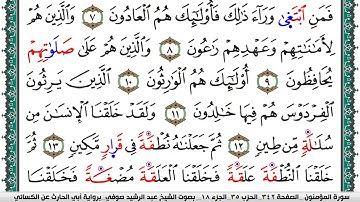 فَمَنِ ٱبۡتَغَىٰ وَرَآءَ ذَٰلِكَ فَأُوْلَٰٓئِكَ هُمُ ٱلۡعَادُونَ ٧ وَٱلَّذِينَ هُمۡ
لِأَمَٰنَٰتِهِمۡ وَعَهۡدِهِمۡ رَٰعُونَ ٨ وَٱلَّذِينَ هُمۡ عَلَىٰ صَلَوَٰتِهِمۡ
يُحَافِظُونَ ٩ أُوْلَٰٓئِكَ هُمُ ٱلۡوَٰرِثُونَ ١٠ ٱلَّذِينَ يَرِثُونَ
ٱلۡفِرۡدَوۡسَ هُمۡ فِيهَا خَٰلِدُونَ ١١ وَلَقَدۡ خَلَقۡنَا ٱلۡإِنسَٰنَ مِن
سُلَٰلَةٖ مِّن طِينٖ ١٢ ثُمَّ جَعَلۡنَٰهُ نُطۡفَةٗ فِي قَرَارٖ مَّكِينٖ ١٣ ثُمَّ
خَلَقۡنَا ٱلنُّطۡفَةَ عَلَقَةٗ فَخَلَقۡنَا ٱلۡعَلَقَةَ مُضۡغَةٗ فَخَلَقۡنَا
سورة المؤمنون . الصفحة ٣٤٢ . الحزب ٣٥ . الجزء ١٨ . بصوت الشيخ عبد الرشيد صوفي . برواية أبي الحارث عن الكسائي